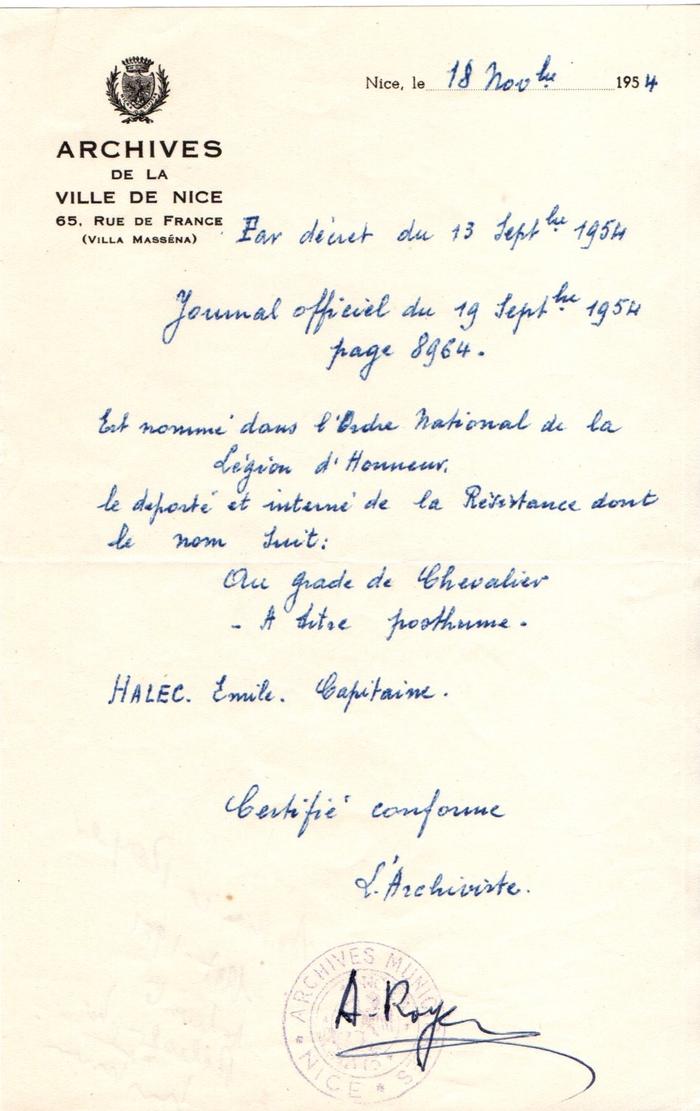 Nice, le 18 Novbre 1954
ARCHIVES
DE LA
VILLE DE NICE
65, RUE DE FRANCE
(VILLA MASSÉNA)
Par décret du 13 Septbre 1954
Journal officiel du 19 Septbre 1954
page 8964.
Est nommé dans l'Ordre National de la
Légion d'Honneur.
le deporté et interné de la Résistance dont
le nom suit:
Au grade de Chevalier
- A titre posthume.
HALEC. Emile. Capitaine.
Certifié conforme
L'Archiviste.
ARCHIVES MUNIC
A. Royer
* NICE *